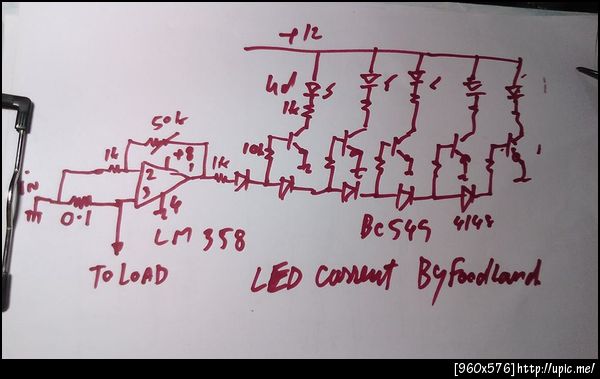 +12
Led
1k
50k
1k
+8
1
2
3
4
1k
10k
in
0.1
LM 358
BC549
4148
TO LOAD
LED Current By foodland
[960x576]http://upic.me/